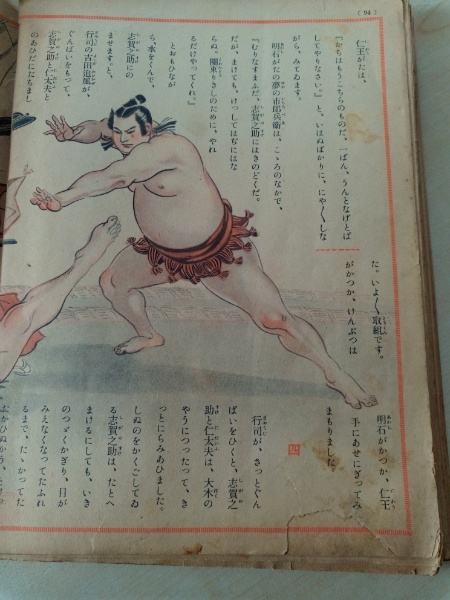 ( 94 )
仁王がたは、
『かちはもうこちらのものだ。一ばん、うんとなげとば
してやりなさい。』と、いはぬばかりに、にや〱しな
がら、みてゐます。
明石がたの夢の市郎兵衞は、こゝろのなかで、
『むりなすまふだ。志賀之助にはきのどくだ。
だが、まけても、けつしてはぢにはな
らぬ。關東りきしのために、やれ
るだけやつてくれ。』
とおもひなが
ら、水をくんで、
志賀之助にの
ませます。と、
行司の吉田追風が、
ぐんばいをもつて、
志賀之助と仁太夫と
のあひだにたちまし
た。いよ〱取組です。
明石がかつか、仁王
がかつか、けんぶつは
手にあせにぎつてみ
まもりました。
行司が、さつとぐん
ばいをひくと、志賀之
助と仁太夫は、大木の
やうにつつたつて、き
つとにらみあひました。
しぬのをかくごしてゐ
る志賀之助は、たとへ
まけるにしても、いき
のつゞくかぎり、目が
みえなくなつてたふれ
るまで、たゝかつてた